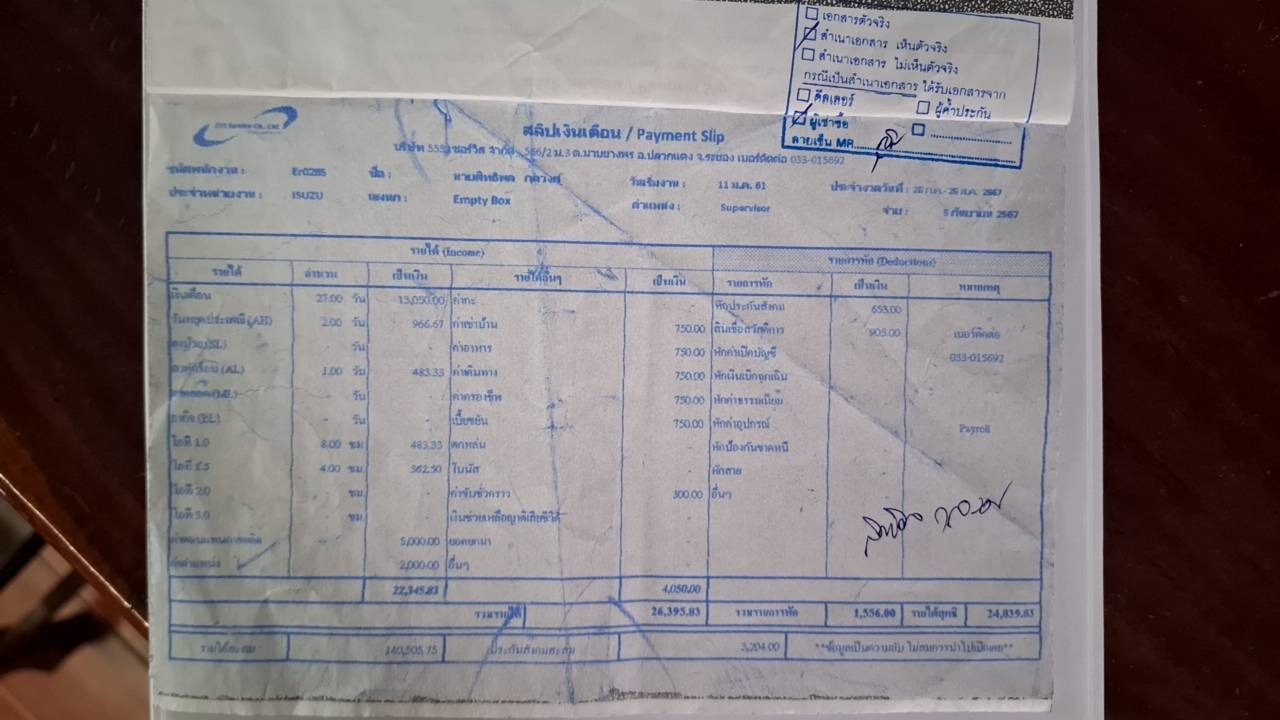 เอกสารตัวจริง
สำเนาเอกสาร เห็นตัวจริง
สำเนาเอกสาร ไม่เห็นตัวจริง
กรณีเป็นสำเนาเอกสาร ได้รับเอกสารจาก
ดีลเลอร์ ผู้ค้ำประกัน
ผู้เช่าซื้อ
ลายเซ็น MR
สลิปเงินเดือน / Payment Slip
บริษัท 555 เซอร์วิส จำกัด 556/2 ม.3 ต.มาบยางพร อ.ปลวกแดง จ.ระยอง เบอร์ติดต่อ 033-015692
รหัสพนักงาน : Er0285 ชื่อ : วันเริ่มงาน : 11 ม.ค. 61 ประจำงวดวันที่ : 2567
ประจำหน่วยงาน : ISUZU แผนก : Empty Box ตำแหน่ง : Supervisor จ่าย : 5 กันยายน 2567
รายได้ (Income) รายการหัก (Deductions)
รายได้ จำนวน เป็นเงิน รายได้อื่นๆ เป็นเงิน รายการหัก เป็นเงิน หมายเหตุ
เงินเดือน 27.00 วัน 13,050.00 ค่ากะ หักประกันสังคม 653.00
วันหยุดประเพณี (AH) 2.00 วัน 966.67 ค่าเช่าบ้าน 750.00 สินเชื่อสวัสดิการ 903.00 เบอร์ติดต่อ
ลาป่วย (SL) วัน ค่าอาหาร 750.00 หักค่าเปิดบัญชี 033-015692
ลาพักร้อน (AL) 1.00 วัน 483.33 ค่าเดินทาง 750.00 หักเงินเบิกฉุกเฉิน
ลาคลอด (ML) วัน ค่าครองชีพ 750.00 หักค่าธรรมเนียม
ลากิจ (BL) - วัน เบี้ยขยัน 750.00 หักค่าอุปกรณ์ Payroll
โอที 1.0 8.00 ชม 483.33 ตกหล่น หักป้องกันขาดหนี
โอที 1.5 4.00 ชม 362.50 โบนัส หักสาย
โอที 2.0 ชม ค่าจ้างชั่วคราว 300.00 อื่นๆ
โอที 3.0 ชม เงินช่วยเหลือญาติเสียชีวิต
5,000.00 ยอดยกมา
ค่าตำแหน่ง 2,000.00 อื่นๆ
22,345.83 4,050.00
รวมรายได้ 26,395.83 รวมรายการหัก 1,556.00 รายได้สุทธิ 24,839.83
รายได้สะสม 140,505.75 ประกันสังคมสะสม 3,204.00 **ข้อมูลเป็นความลับ ไม่สมควรนำไปเปิดเผย**